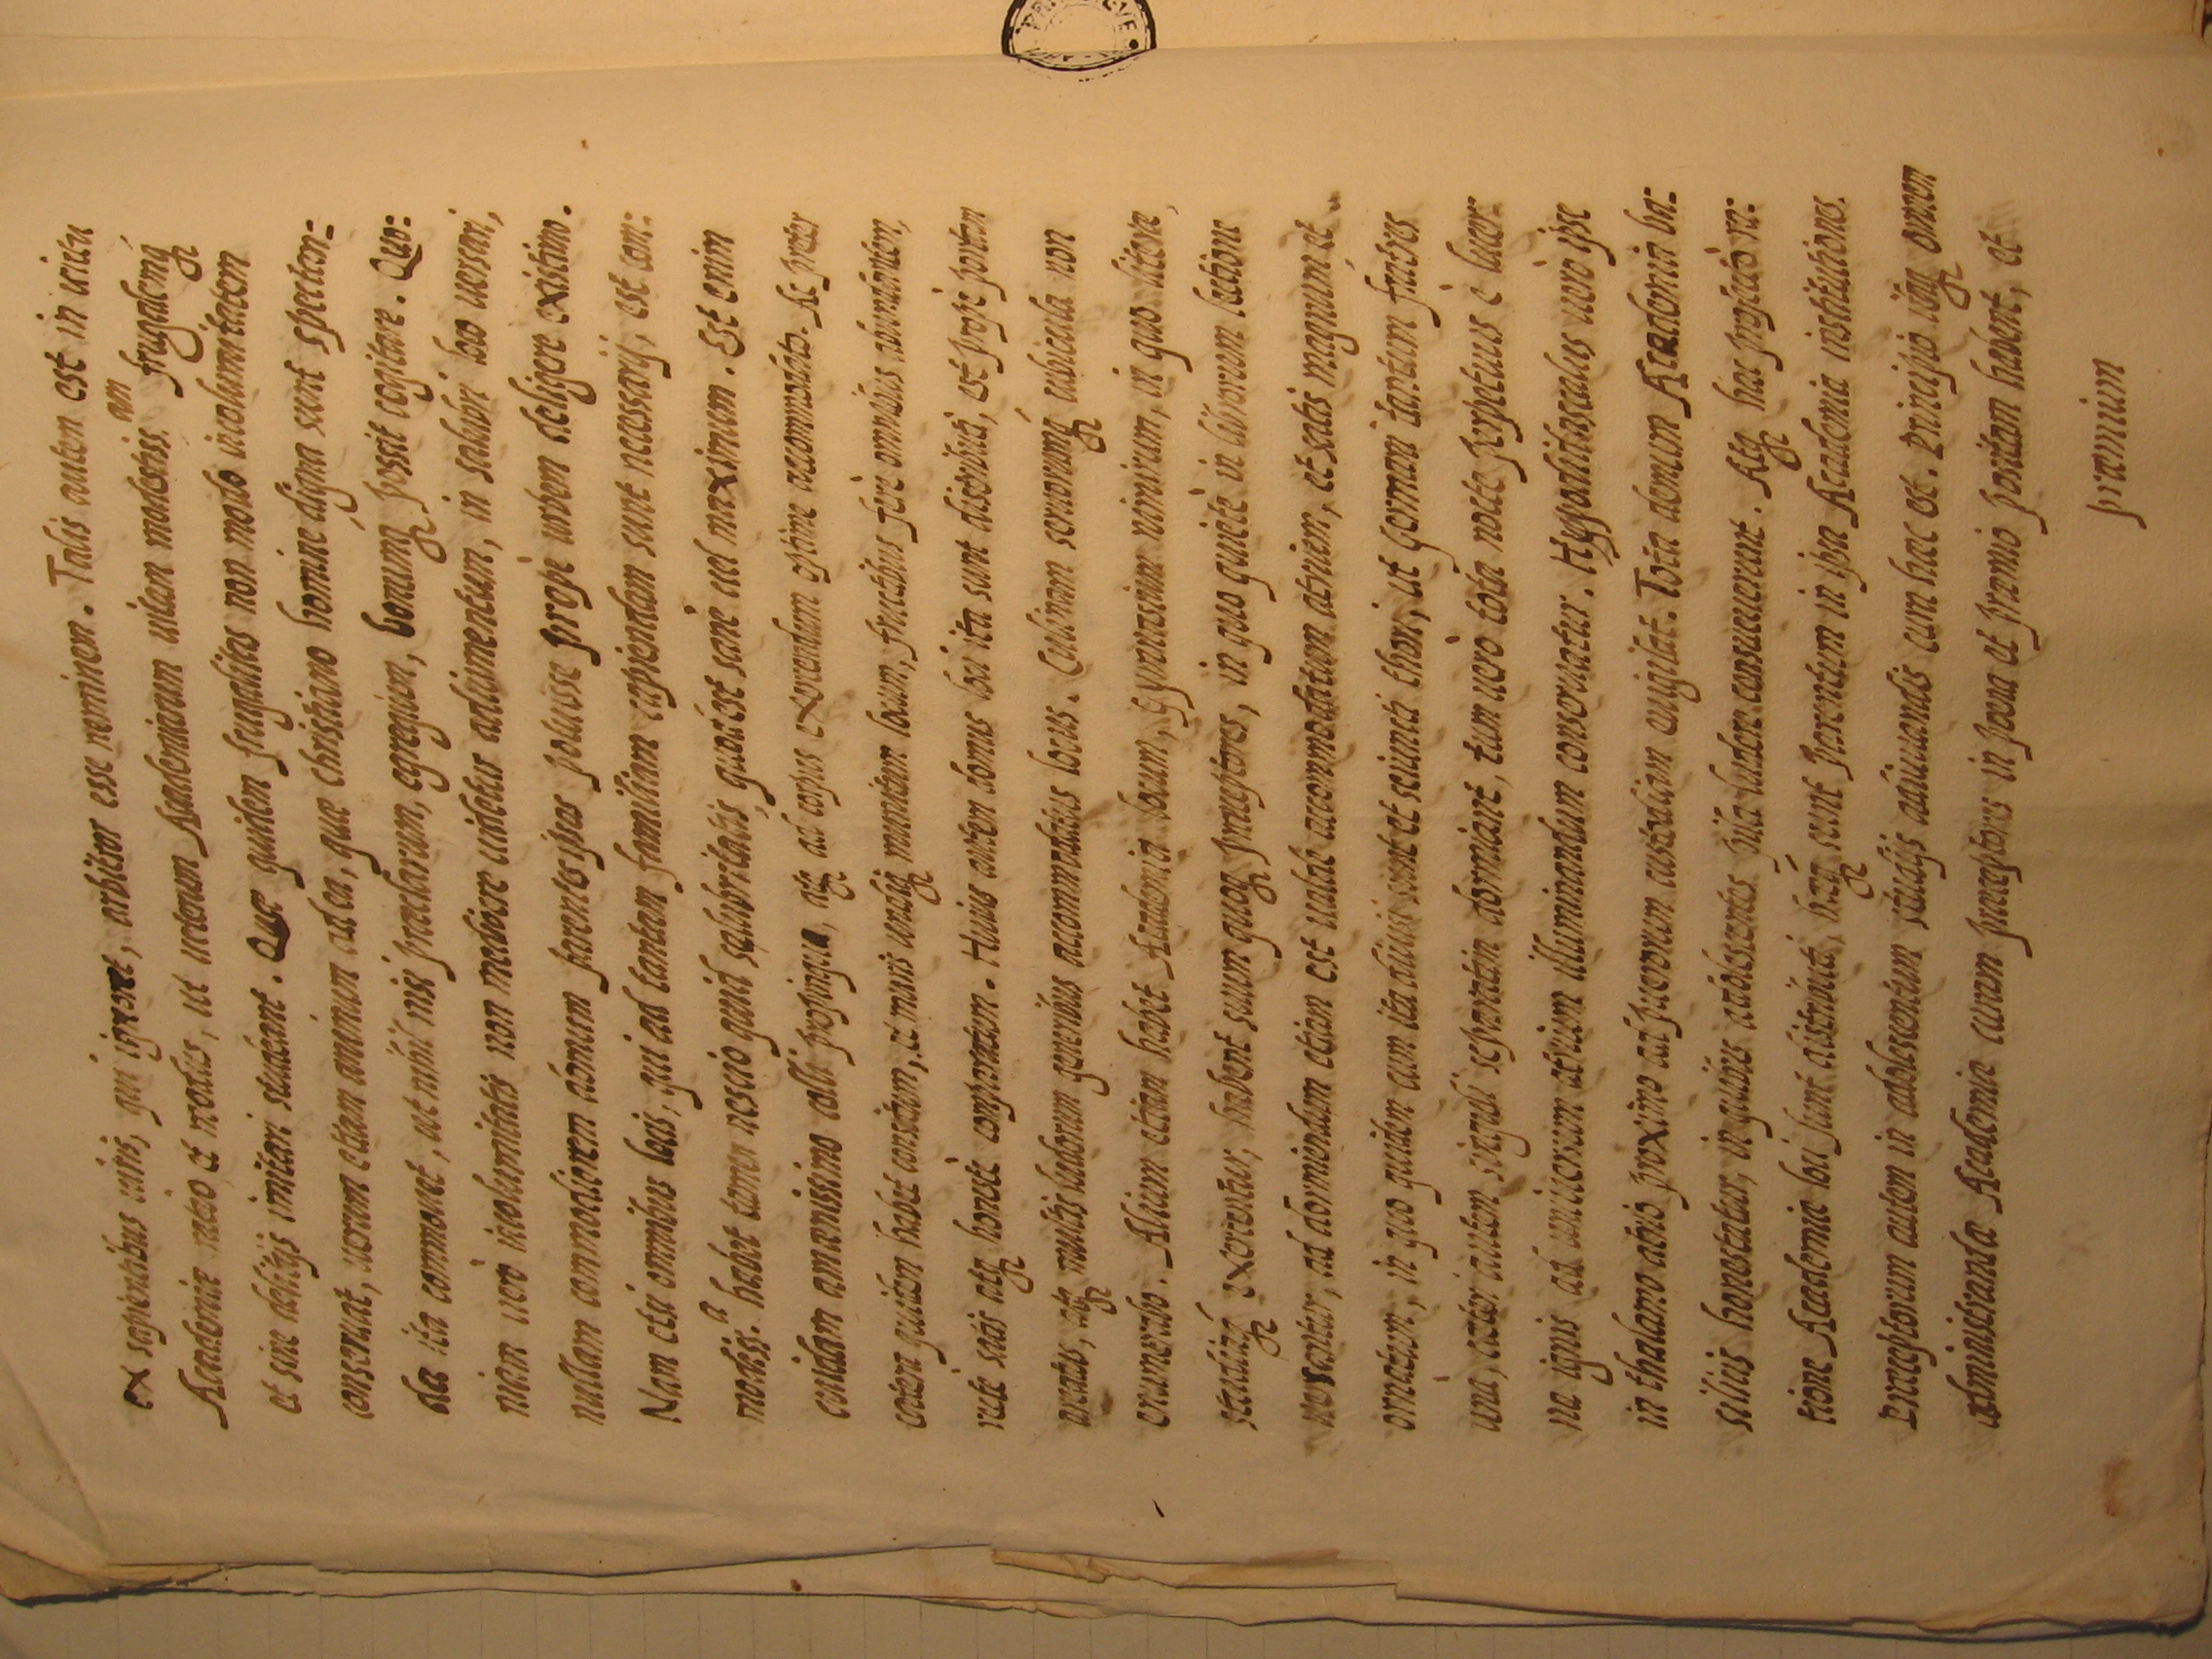 ex sapientibus uiris, qui ignoret, arbitror esse neminem. Talis autem est in uictu
Academiæ ratio et modus, ut uideam Academicam uitam modestiss. am frugalemq́
et sine delitijs imitari studeant. Quæ quidem frugalitas non modo incolumitatem
conseruat, uerum etiam animum adea, quæ christiano homine digna sunt spectan=
da ita commouet, ut nihil nisi præclarum, egregium, bonumq́ possit cogitare. Quo=
niam uerò incolumitatis non mediocre uidetur adiumentum, in salubri loco uersari,
nullam commodiorem domum parentes ipsos potuisse prope urbem deligere existimo.
Nam etsi omnibus locis, qui ad tantam familiam capiendam sunt necessarij, est com=
modiss. a habet tamen nescio quid salubritatis, quòd est sanè uel maximum. Est enim
cuidam amœnissimo colli propinqua, atq ad corpus exercendum optime accommodato. Ac præter
cœtera quidem habet consitum, et muris undiq́ munitum locum, fructibus ferè omnibus abundantem,
recte satis atq honestè comparatum. Huius autem domus loci ita sunt distributi, est propè portam
uestis, atq multis laudorum generibus accommodatus locus. Culinam seruorumq́ cubicula non
enumerabo. Alium etiam habet Academia locum, Gymnasium nimirum, in quo literæ,
studiaq́ exercentur, habent suum quoq præceptores, in quo quietè in librorum lectione
uersantur, ad dormiendum etiam est ualde accommodatum atrium, et satis magnum et
ornatum, in quo quidem cum ita diuisi sint et seiuncti thori, ut germani tantum fratres
unà, cæteri autem singuli separatim dormiant, tum uerò tota nocte perpetuus è lucer=
na ignis ad uniuersum atrium illuminandum conseruatur. Hypodidascalus uero ipse
in thalamo atrio proximo ad puerorum custodiam euigilat. Tota domum Academia ba=
silijs honestatur, in quibus adolescentes pila ludere consueuerunt. Atq hæc proptereà ra=
tione Academiæ loci sunt distributi, hæcq́ sunt parentum in ipsa Academia institutiones.
Præceptorum autem in adolescentum studijs adiuuandis cum hæc est. Principio ioq́ omnem
administranda Academiæ curam præceptores in poena et præmio positam habent, et
præmium